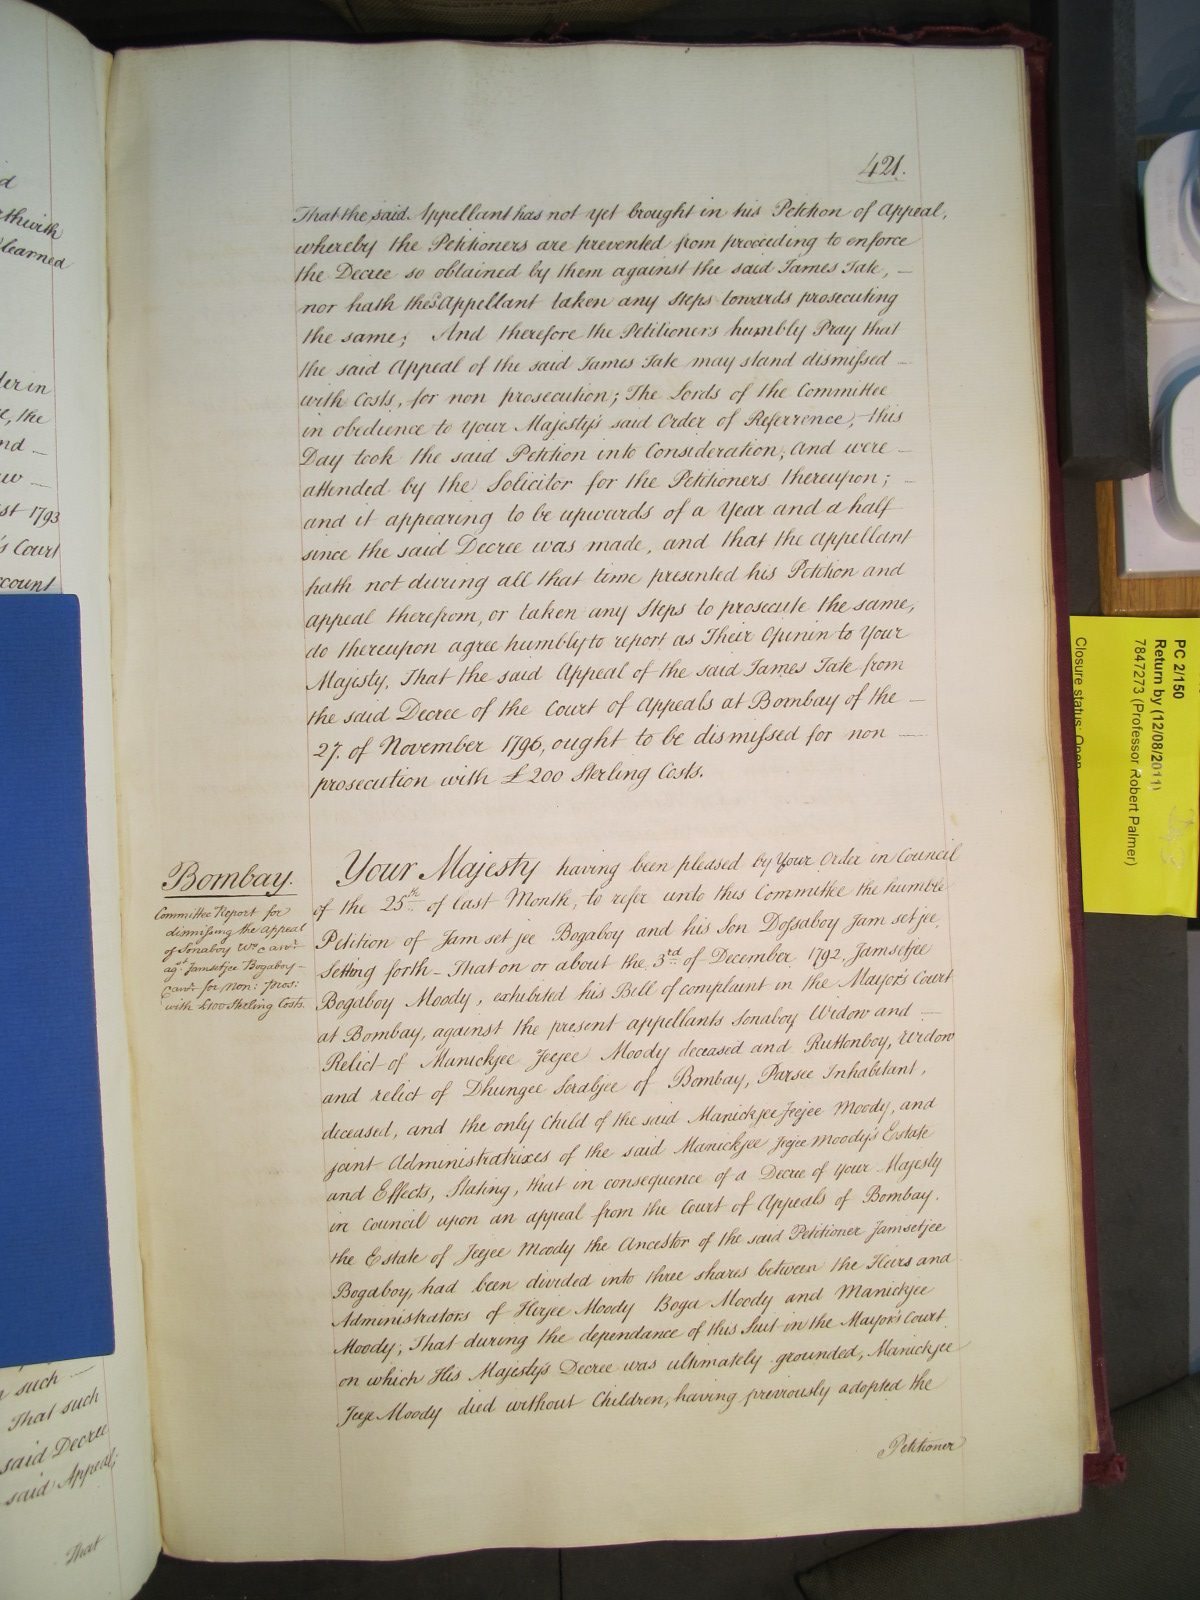 421.
That the said Appellant has not yet brought in his Petition of Appeal,
whereby the Petitioners are prevented from proceeding to enforce
the Decree so obtained by them against the said James Tate, —
nor hath the sd Appellant taken any steps towards prosecuting
the same; And therefore the Petitioners humbly Pray that
the said Appeal of the said James Tate may stand dismissed —
with Costs, for non prosecution; The Lords of the Committee
in obedience to Your Majesty's said Order of Referrence, this
Day took the said Petition into Consideration, and were —
attended by the Solicitor for the Petitioners thereupon; —
and it appearing to be upwards of a Year and a half
since the said Decree was made, and that the appellant
hath not during all that time presented his Petition and
appeal therefrom, or taken any Steps to prosecute the same,
do thereupon agree humbly to report as Their Opinin to Your
Majesty, That the said Appeal of the said James Tate from
the said Decree of the Court of Appeals at Bombay of the —
27. of November 1796, ought to be dismissed for non —
prosecution with £200 Sterling Costs.
Bombay.
Committee Report for
dismissing the appeal
of Sonaboy Wo: &
agst Jamsetjee Bogaboy —
for non: pros:
with £100 Sterling Costs.
Your Majesty having been pleased by Your Order in Council
of the 25th of Last Month, to refer unto this Committee the humble
Petition of Jam set jee Bogaboy and his son Dossaboy Jam set jee,
Setting forth — That on or about the 3rd of December 1792, Jamsetjee
Bogaboy Moody, exhibited his Bill of complaint in the Mayor's Court
at Bombay, against the present appellants Sonaboy Widow and —
Relict of Manickjee Jeejee Moody deceased and Ruttonboy, Widow
and relict of Dhungee Sorabjee of Bombay, Parsee Inhabitant,
deceased, and the only Child of the said Manickjee Jeejee Moody, and
joint Administratrixes of the said Manickjee Jeejee Moody's Estate
and Effects, Stating, that in consequence of a Decree of your Majesty
in Council upon an appeal from the Court of Appeals of Bombay.
the Estate of Jeejee Moody the Ancestor of the said Petitioner Jamsetjee
Bogaboy, had been divided into three shares between the Heirs and
Administrators of Hirjee Moody Boga Moody and Manickjee
Moody; That during the dependance of this Suit in the Mayor's Court
on which His Majesty's Decree was ultimately grounded, Manickjee
Jeejee Moody died without Children, having previously adopted the
Petitioner
d
rthwith
learned
der in
e, the
nd —
w —
st 1793
's Court
ccount
such —
That such
said Decree
said Appeal;
That
PC 2/150
Return by (12/08/2011)
7847273 (Professor Robert Palmer)
Closure status: Open